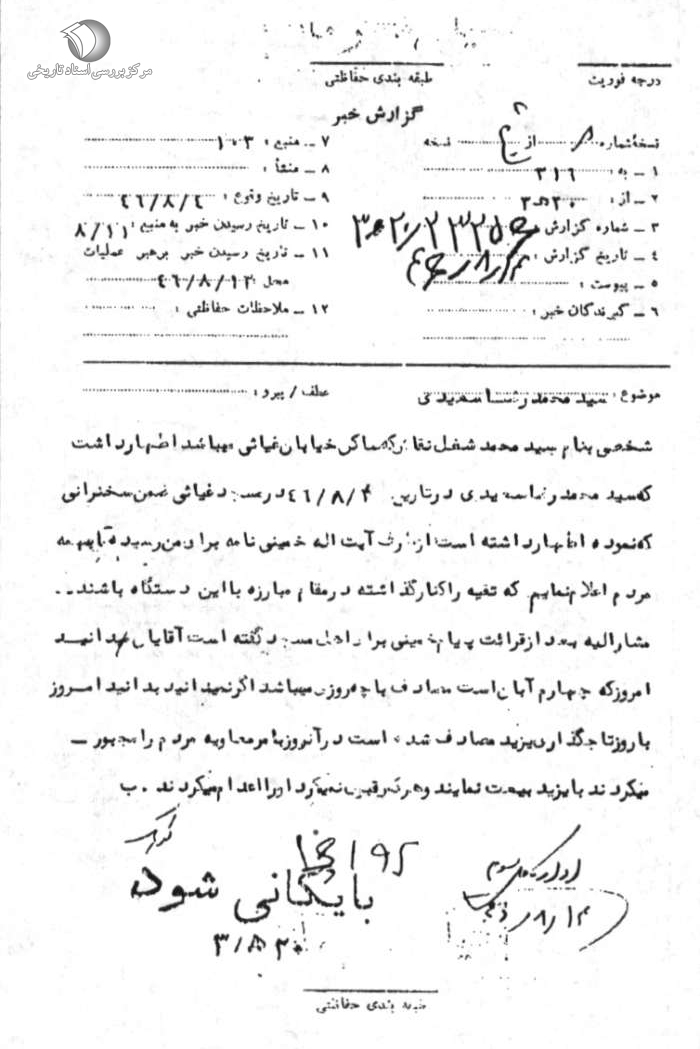 مرکز بررسی اسناد تاریخی
درجه فوریت
طبقه بندی حفاظتی
گزارش خبر
نسخهٔ شماره از نسخه
۱ ـ به : ۳۱۶
۲ ـ از : ۲۰ﻫ۳
۳ ـ شماره گزارش
۴ ـ تاریخ گزارش :
۵ ـ پیوست :
۶ ـ گیرندگان خبر :
۷ ـ منبع : ۱۰۳
۸ ـ منشأ :
۹ ـ تاریخ وقوع : ۴۶/۸/۴
۱۰ ـ تاریخ رسیدن خبر به منبع : ۸/۱۱
۱۱ ـ تاریخ رسیدن خبر برهبر عملیات
محل : ۴۶/۸/۱۳
۱۲ ـ ملاحظات حفاظتی :
موضوع : سید محمد رضا سعیدی
عطف / پیرو :
شخصی بنام سید محمد شغل که ساکن خیابان غیاثی میباشد اظهارداشت
که سید محمد رضا سعیدی در تاریخ ۴۶/۸/۴ در مسجد غیاثی ضمن سخنرانی
که نموده اظهارداشته است از طرف آیت اله خمینی نامه برای من رسیده تا بهمه
مردم اعلام نمایم که تقیه را کنار گذاشته در مقام مبارزه با این دستگاه باشند . .
مشارالیه بعد از قرائت پیام خمینی برای اهل مسجد گفته است آقایان میدانید
امروز که چهارم آبان است مصادف با چه روزی میباشد اگر نمیدانید بدانید امروز
با روز تاجگذاری یزید مصادف شده است در آنروز هم معاویه مردم را مجبور ـ
میکردند با یزید بیعت نمایند و هر کس قبول نمیکرد او را اعدام میکردند . ب
بایگانی شود
۲۰ﻫ۳
اداره کل سوم
طبقه بندی حفاظتی